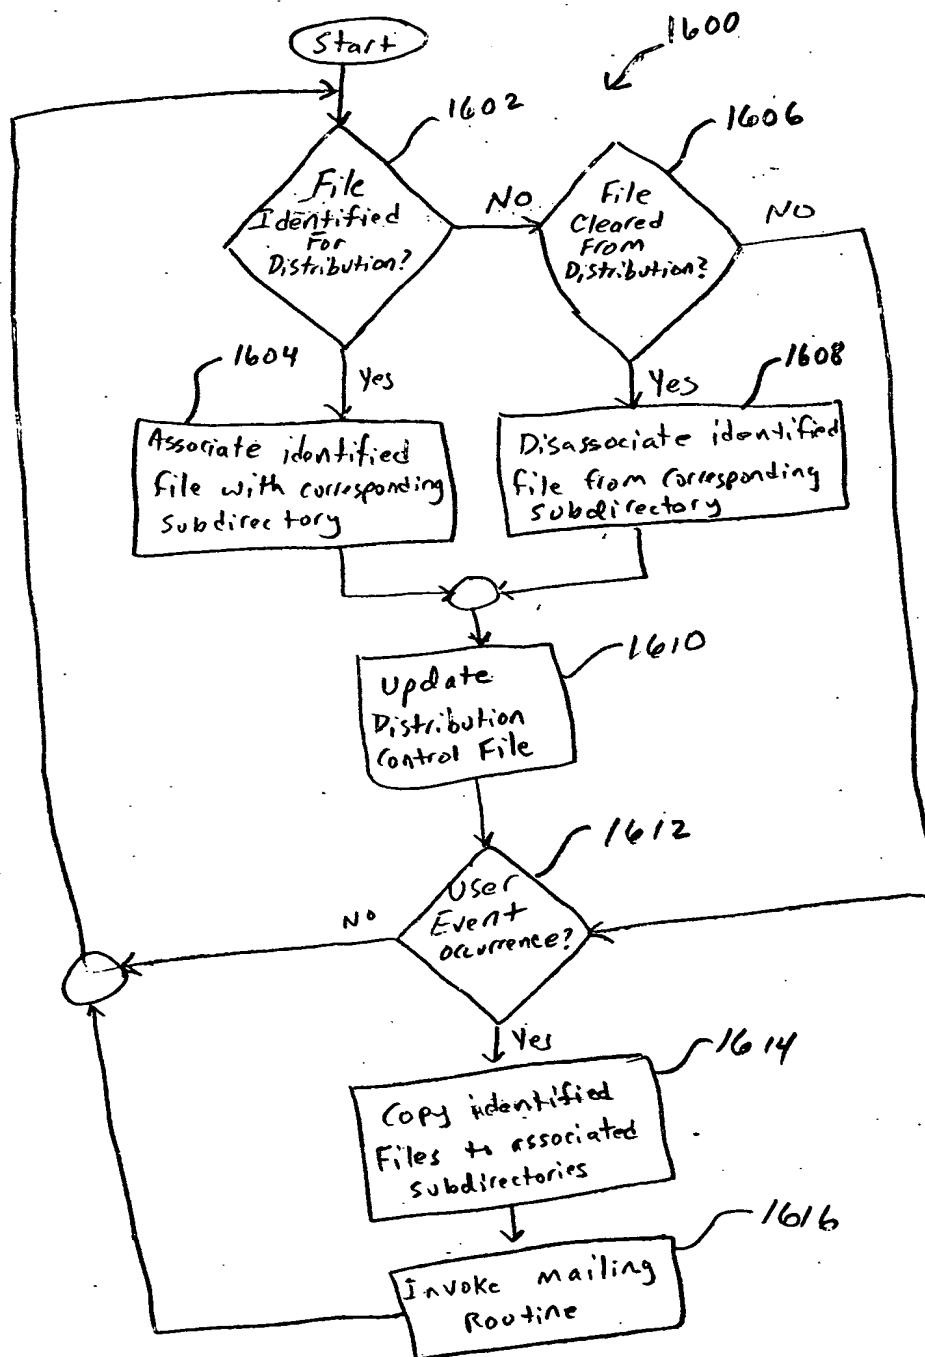 Start
1600
1602
1606
File
Identified
For
Distribution?
NO
File
Cleared
From
Distribution?
NO
1604
Yes
1608
Yes
Associate identified
file with corresponding
subdirectory
Disassociate identified
file from corresponding
subdirectory
1610
Update
Distribution
Control File
1612
User
Event
occurrence?
NO
Yes
1614
Copy identified
Files to associated
subdirectories
1616
Invoke mailing
Routine